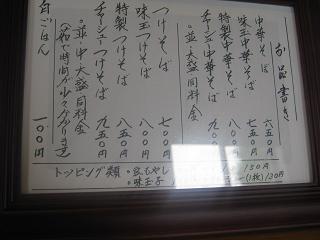 お品書き
中華そば 六五〇円
味玉中華そば 七五〇円
特製中華そば 八〇〇円
チャーシュー中華そば 九〇〇円
。並・中・大盛同料金
つけそば 七〇〇円
味玉つけそば 八〇〇円
特製つけそば 八五〇円
チャーシューつけそば 九五〇円
。並・中・大盛同料金
白ごはん 一〇〇円
トッピング類
味玉子
150円
(1枚)120円